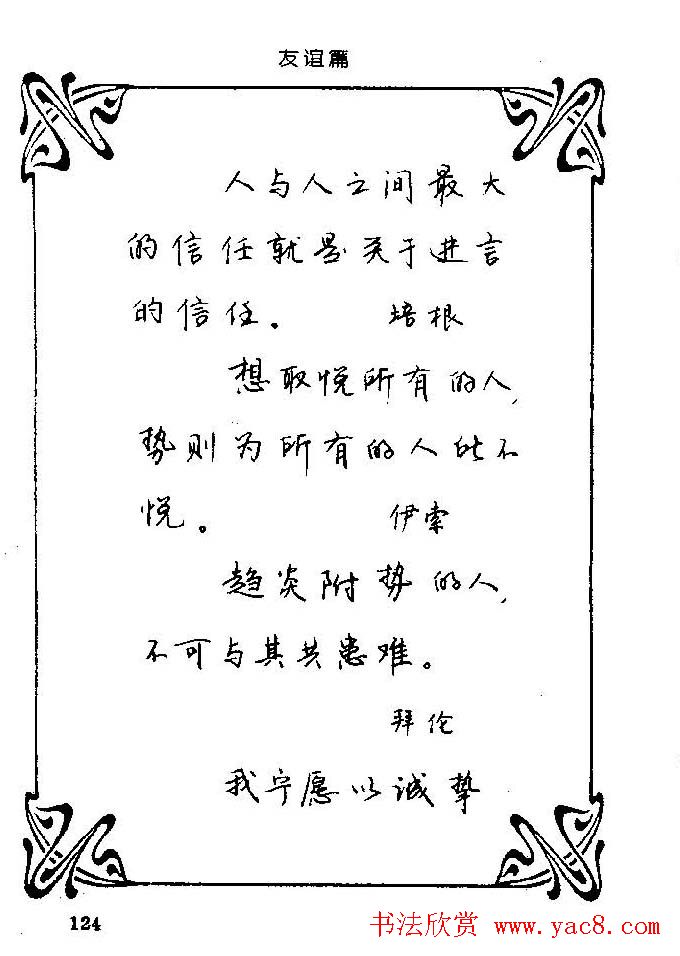 友谊篇
人与人之间最大
的信任就是关于进言
的信任。 培根
想取悦所有的人,
势则为所有的人所不
悦。 伊索
趋炎附势的人,
不可与其共患难。
拜伦
我宁愿以诚挚
124
书法欣赏 www.yac8.com